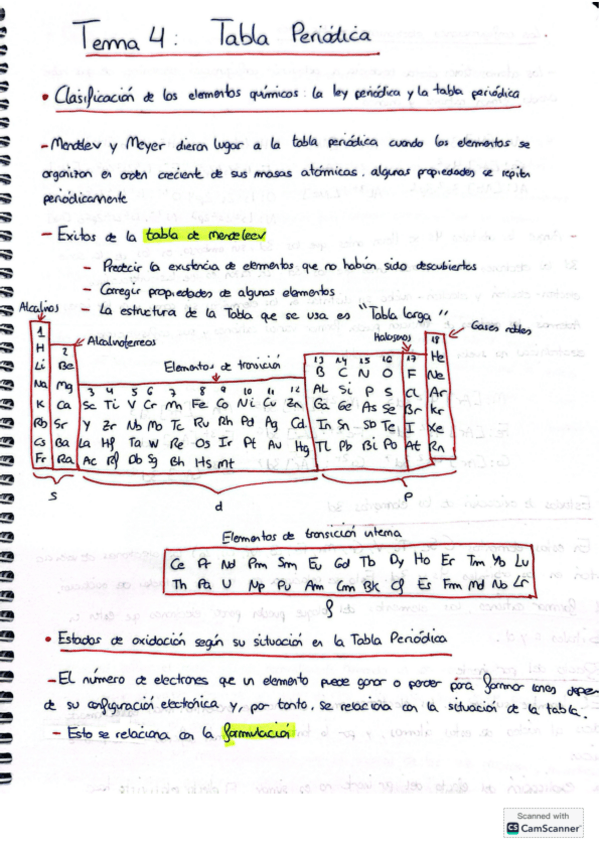 Tema 4: Tabla Periódica
• Clasificación de los elementos químicos: la ley periódica y la tabla periódica
- Mendelev y Meyer dieron lugar a la tabla periódica cuando los elementos se
organizan en orden creciente de sus masas atómicas, algunas propiedades se repiten
periódicamente
- Exitos de la tabla de mendeleev
- Predecir la existencia de elementos que no habían sido descubiertos
- Corregir propiedades de algunos elementos
- La estructura de la Tabla que se usa es "Tabla larga"
Alcalinos
Alcalinoterreos
Elementos de transición
Halogenos
Gases nobles
1 18
H 2 13 14 15 16 17 He
Li Be B C N O F Ne
Na Mg 3 4 5 6 7 8 9 10 11 12 AL Si P S CL Ar
K Ca Sc Ti V Cr Mn Fe Co Ni Cu Zn Ga Ge As Se Br Kr
Rb Sr Y Zr Nb Mo Tc Ru Rh Pd Ag Cd In Sn Sb Te I Xe
Cs Ba La Hf Ta W Re Os Ir Pt Au Hg TL Pb Bi Po At Rn
Fr Ra Ac Rf Db Sg Bh Hs mt
s d p
Elementos de transición interna
Ce Pr Nd Pm Sm Eu Gd Tb Dy Ho Er Tm Yb Lu
Th Pa U Np Pu Am Cm Bk Cf Es Fm Md No Lr
f
• Estados de oxidación según su situación en la Tabla Periódica
- EL número de electrones que un elemento puede ganar o perder para formar iones depen
de su configuración electrónica y, por tanto, se relaciona con la situación de la tabla.
- Esto se relaciona con la formulación
Scanned with
CS CamScanner